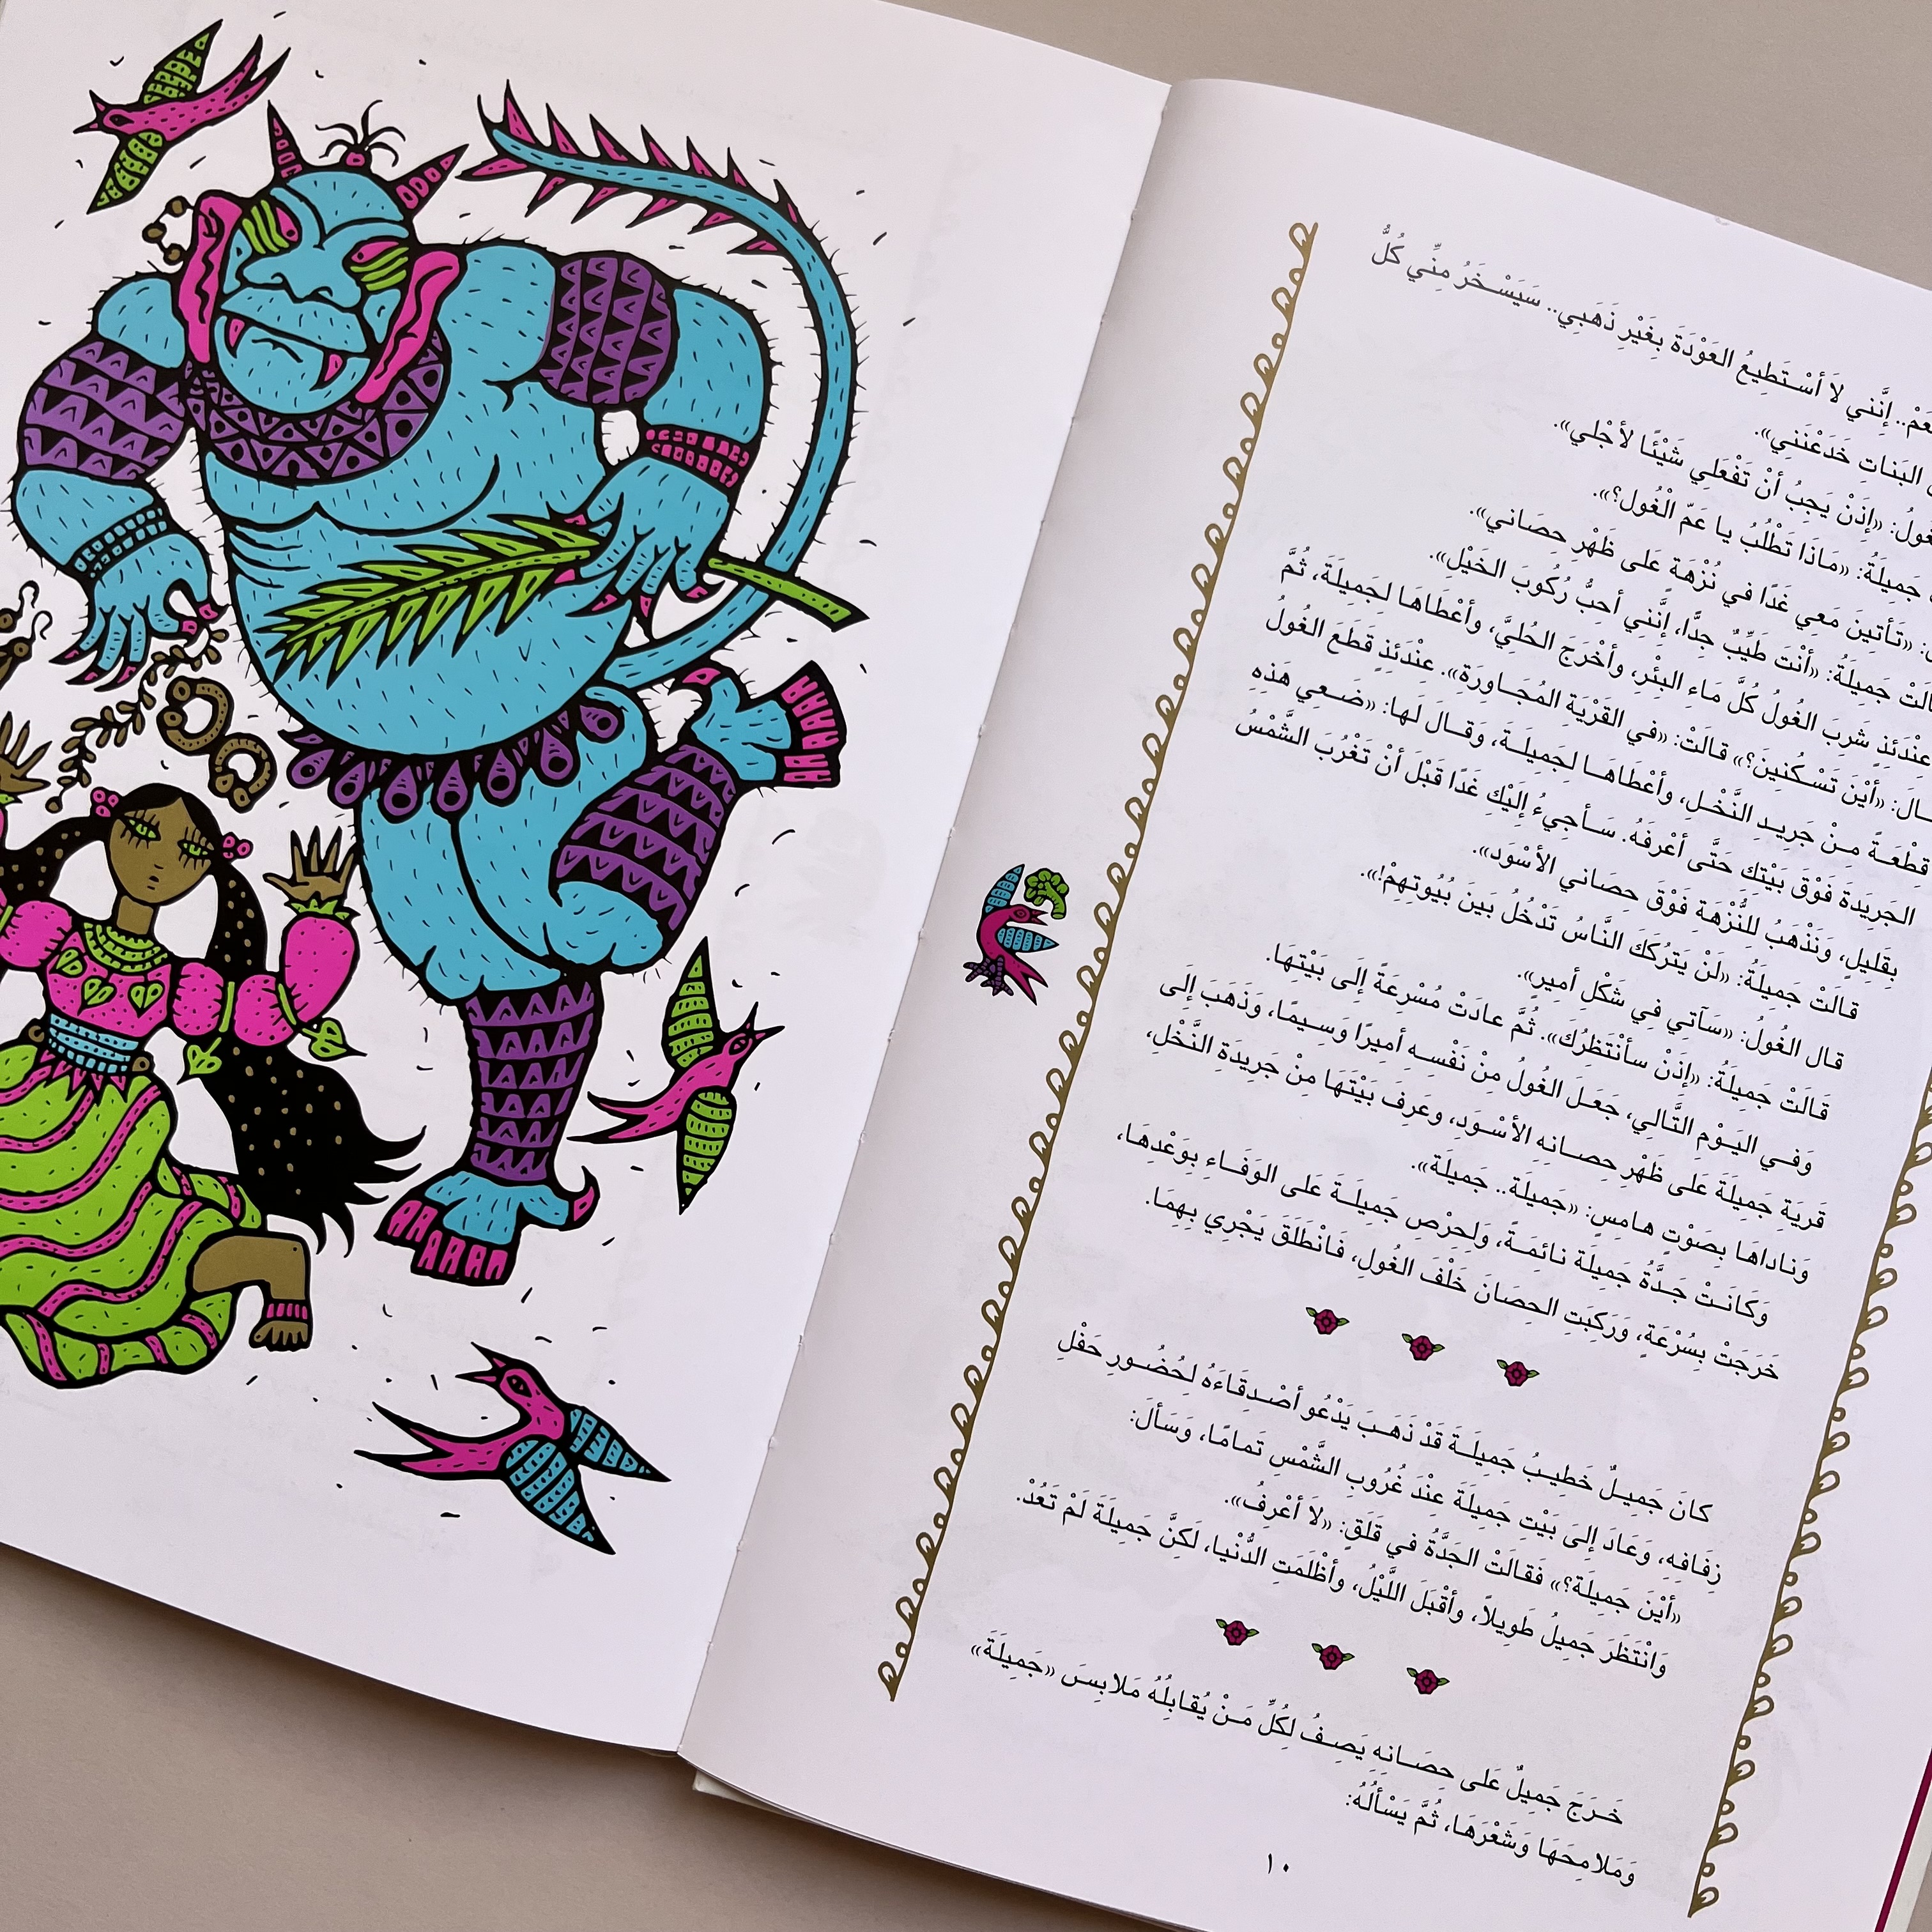 إِنَّنِي لاَ أَسْتَطِيعُ العَوْدَةَ بِغَيْرِ ذَهَبِي.. سَيَسْخَرُ مِنِّي كُلُّ
البَنَاتِ خَدَعْنَنِي».
«إِذَنْ يَجِبُ أَنْ تَفْعَلِي شَيْئًا لأَجْلِي».
جَمِيلَةُ: «مَاذَا تَطْلُبُ يا عَمّ الْغُول؟».
«تَأتِينَ مَعِي غَدًا في نُزْهَةٍ عَلى ظَهْرِ حِصَاني».
جَمِيلَةُ: «أَنْتَ طَيِّبٌ جِدًّا، إِنَّنِي أُحِبُّ رُكُوبَ الخَيْلِ».
عِنْدَئِذٍ شَرِبَ الغُولُ كُلَّ مَاءِ البِئْرِ، وأَخْرَجَ الحُلِيَّ، وأَعْطَاهَا لِجَمِيلَةَ، ثُمَّ
«أَيْنَ تَسْكُنِينَ؟» قالَتْ: «في القَرْيَةِ المُجَاوِرَةِ». عِنْدَئِذٍ قَطَعَ الغُولُ
قِطْعَةً مِنْ جَرِيدِ النَّخْلِ، وأَعْطَاهَا لِجَمِيلَةَ، وَقَالَ لَها: «ضَعِي هَذِهِ
الجَرِيدَةَ فَوْقَ بَيْتِكِ حَتَّى أَعْرِفَهُ. سَأَجِيءُ إِلَيْكِ غَدًا قَبْلَ أَنْ تَغْرُبَ الشَّمْسُ
بِقَلِيلٍ، وَنَذْهَبُ لِلنُّزْهَةِ فَوْقَ حِصَاني الأَسْوَد».
قَالَتْ جَمِيلَةُ: «لَنْ يَتركَكَ النَّاسُ تَدْخُلُ بَينَ بُيُوتِهِمْ!».
قال الغُولُ: «سَآتي فِي شَكْلِ أَمِيرٍ».
قَالَتْ جَمِيلَةُ: «إِذَنْ سأَنْتَظِرُكَ». ثُمَّ عادَتْ مُسْرِعَةً إِلَى بَيْتِهَا.
وَفي اليَوْمِ التَّالِي، جَعَلَ الغُولُ مِنْ نَفْسِهِ أَمِيرًا وَسِيمًا، وَذَهَبَ إِلَى
قَريَةِ جَمِيلَةَ عَلَى ظَهْرِ حِصانِهِ الأَسْوَدِ، وعَرِفَ بَيْتَهَا مِنْ جَرِيدَةِ النَّخْلِ،
وَناداهَا بِصَوْتٍ هامِسٍ: «جَمِيلَة.. جَمِيلَة».
وَكَانَتْ جَدَّةُ جَمِيلَة نائِمَةً، وَلِحِرْصِ جَمِيلَةَ عَلَى الوَفَاءِ بِوَعْدِهَا،
خَرَجَتْ بِسُرْعَةٍ، وَرَكِبَتِ الحِصَانَ خَلْفَ الغُولِ، فَانْطَلَقَ يَجْرِي بِهِمَا.
كانَ جَمِيلٌ خَطِيبُ جَمِيلَةَ قَدْ ذَهَبَ يَدْعُو أَصْدِقَاءَهُ لِحُضُورِ حَفْلِ
زِفَافِهِ، وَعَاد إِلَى بَيْتِ جَمِيلَةَ عِنْدَ غُرُوبِ الشَّمْسِ تَمامًا، وَسَأَلَ:
«أَيْنَ جَمِيلَة؟» فَقالَتْ الجَدَّةُ في قَلَقٍ: «لا أَعْرِفُ».
وَانْتَظَرَ جَمِيلُ طَوِيلاً، وأَقْبَلَ اللَّيْلُ، وأَظْلَمَتِ الدُّنْيا، لَكِنَّ جَمِيلَةَ لَمْ تَعُدْ.
خَرَجَ جَمِيلٌ عَلى حِصَانِهِ يَصِفُ لِكُلِّ مَنْ يُقابِلُهُ مَلابِسَ «جَمِيلَةَ»
وَمَلامِحَهَا وَشَعْرَهَا، ثُمَّ يَسْأَلُهُ:
١٠